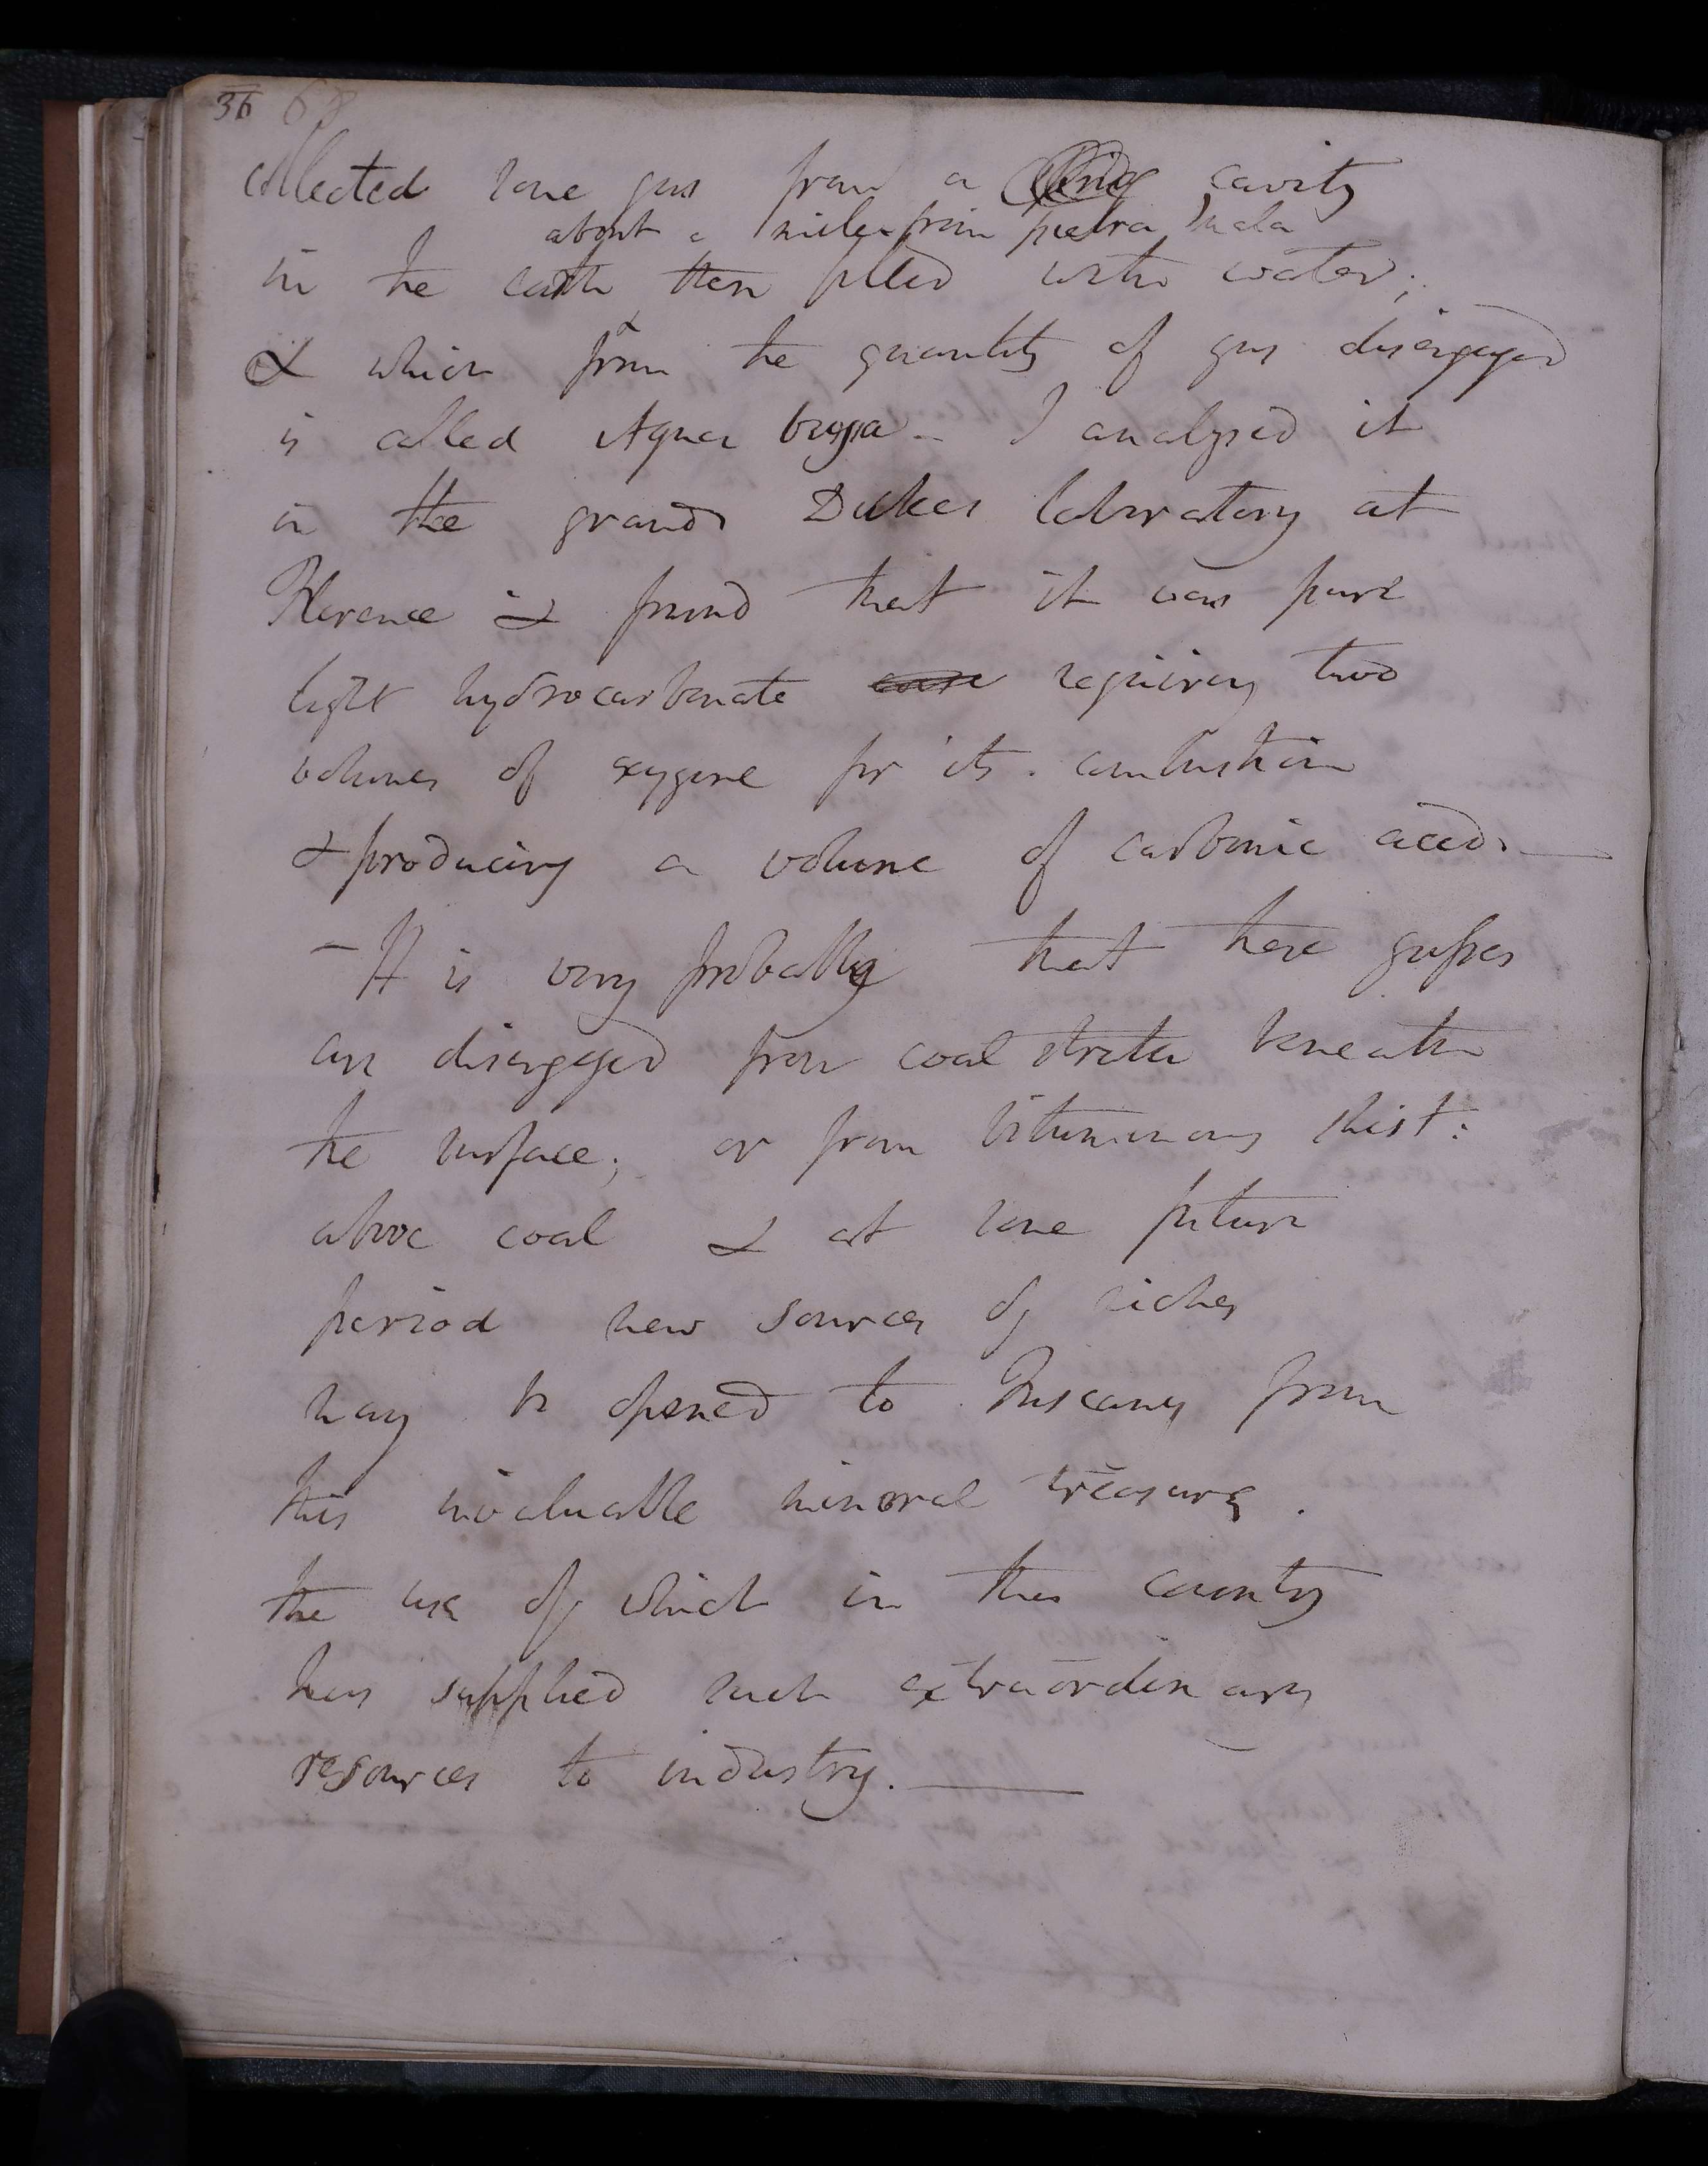 36 68
collected some gas from a cavity
about a mile from pietra mala
in the earth then filled with water;
& which from the quantity of gas disengaged
is called Aqua buja. I analysed it
in the grand Dukes laboratory at
Florence & found that it was pure
light hydrocarbonate requiring two
volumes of oxygene for its combustion
& producing a volume of carbonic acid. —
– It is very probably that these gasses
are disengaged from coal strata beneath
the surface; or from bituminous shist:
above coal & at some future
period new sources of riches
may be opened to Tuscany from
this invaluable mineral treasure.
the use of which in this country
has supplied such extraordinary
resources to industry. —